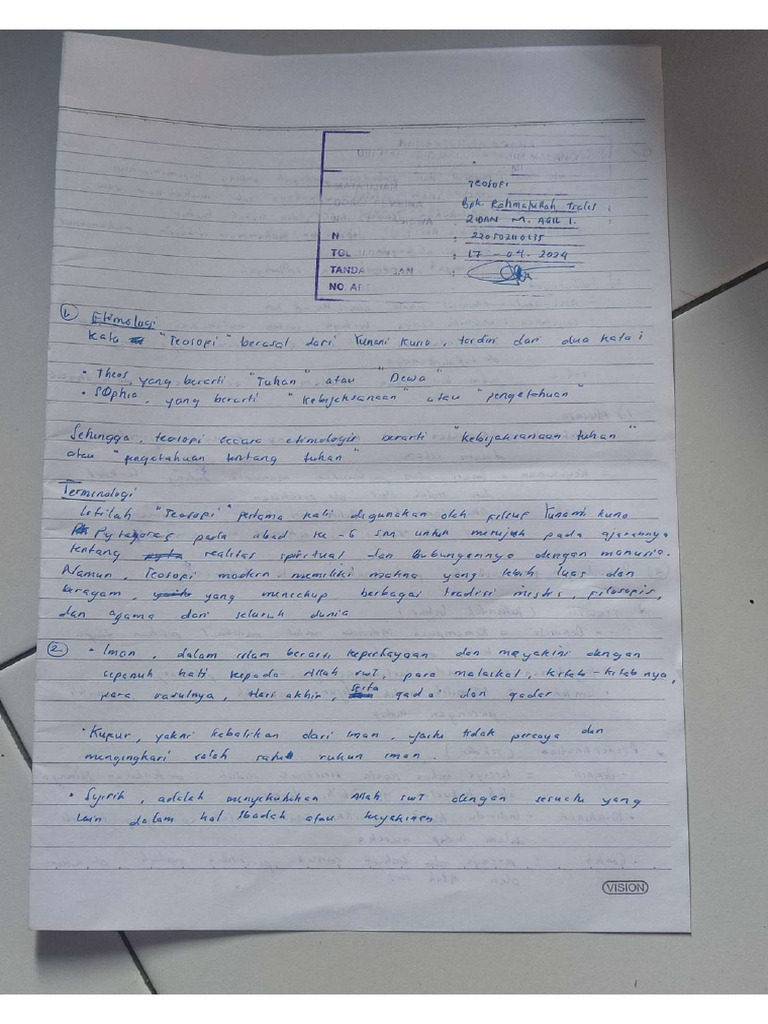 TEOSOFI
Bpk. Rahmatullah
ZIDAN M. AGIL I.
N : 220502110135
TGL : 17 - 04 - 2024
TANDA AN :
NO. AB
1. Etimologi
Kata "Teosopi" berasal dari Yunani Kuno, terdiri dari dua kata :
• Theos, yang berarti "Tuhan" atau "Dewa"
• SOphia, yang berarti "Kebijaksanaan" atau "pengetahuan"
Sehingga, teosopi secara etimologis berarti "kebijaksanaan tuhan"
atau "pengetahuan tentang tuhan"
Terminologi
Istilah "Teosopi" pertama kali digunakan oleh filsuf Yunani kuno
Pytagoras pada abad ke-6 SM untuk merujuk pada ajarannya
tentang realitas spiritual dan hubungannya dengan manusia.
Namun, Teosopi modern memiliki makna yang lebih luas dan
beragam, yang mencakup berbagai tradisi mistis, filosopis,
dan agama dari seluruh dunia
2. • Iman, dalam islam berarti kepercayaan dan meyakini dengan
sepenuh hati kepada Allah swt, para malaikat, kitab-kitab nya,
para rasulnya, Hari akhir, serta qada dan qadar
• Kupur, yakni kebalikan dari iman, yaitu tidak percaya dan
mengingkari salah satu rukun iman.
• Syirik, adalah menyekutukan Allah swt dengan sesuatu yang
lain dalam hal Ibadah atau keyakinan
VISION